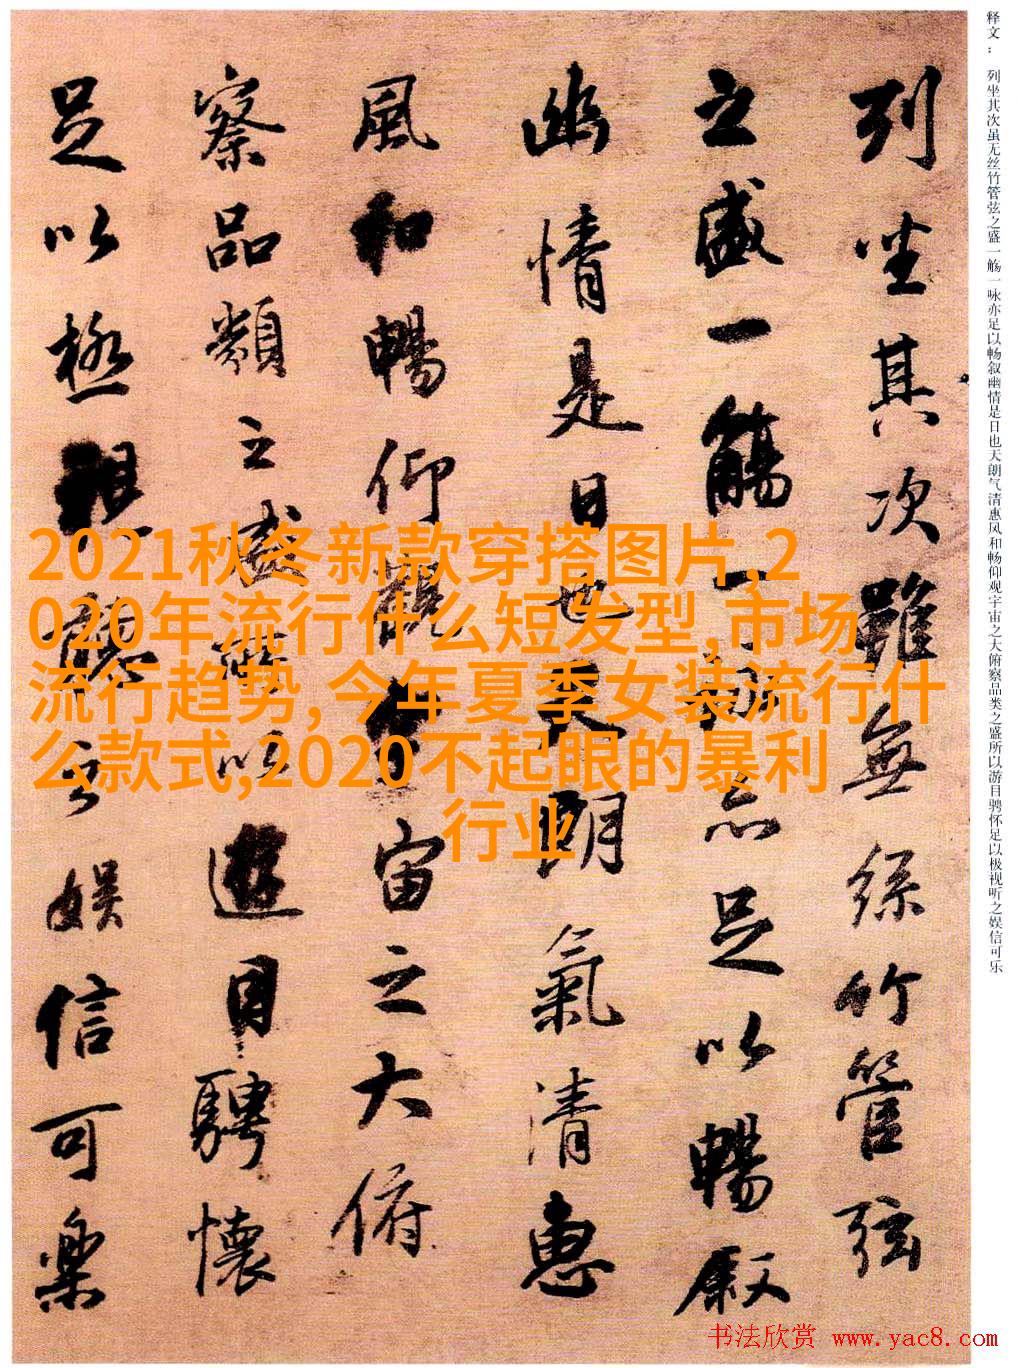 释文：列坐其次虽无丝竹管弦之盛一觞一咏亦足以畅叙幽情是日也天朗气清惠风和畅仰观宇宙之大俯察品类之盛所以游目骋怀足以极视听之娱信可乐
列坐其次雖無絲竹管弦
之盛一觴一詠亦足以暢叙
幽情是日也天朗氣清惠
風和暢仰觀宇宙之大俯
察品類之盛所以遊目騁懷
足以極視聽之娛信可樂
2021秋冬新款穿搭图片,2
020年流行什么短发型,市场
流行趋势,今年夏季女装流行什
么款式,2020不起眼的暴利
行业
书法欣赏 www.yac8.com